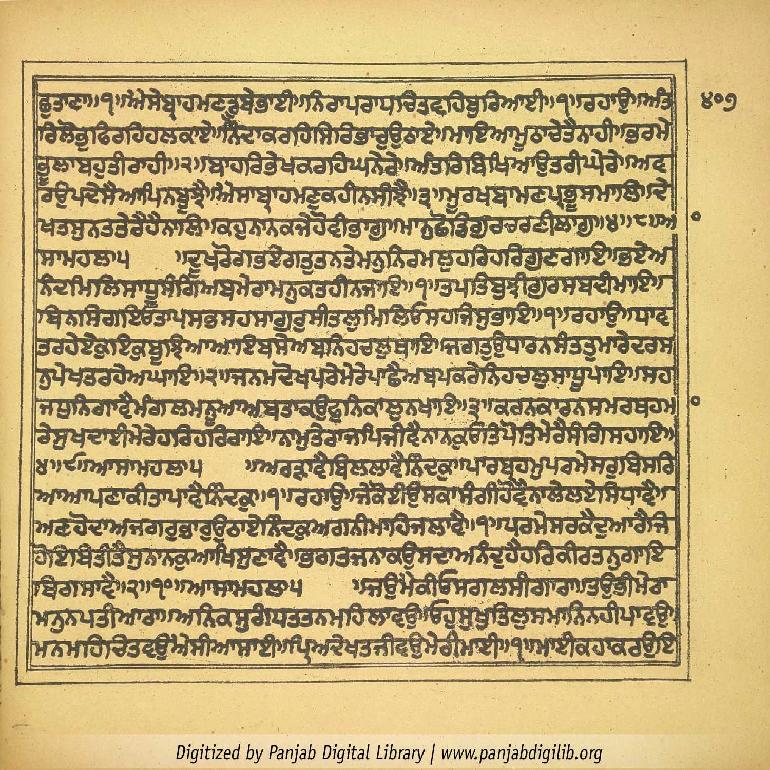 ਛੁਤਾਣਾ॥੧॥ਐਸੇਬ੍ਰਾਹਮਣਡੂਬੇਭਾਈ॥ਨਿਰਾਪਰਾਧਚਿਤਵਹਿਬੁਰਿਆਈ॥੧॥ਰਹਾਉ॥ਅੰਤ
੪੦੭
ਰਿਲੋਭੁਫਿਰਹਿਹਲਕਾਏ॥ਨਿੰਦਾਕਰਹਿਸਿਰਿਭਾਰੁਉਠਾਏ॥ਮਾਇਆਮੂਠਾਚੇਤੈਨਾਹੀ॥ਭਰਮੇ
ਭੂਲਾਬਹੁਤੀਰਾਹੀ॥੨॥ਬਾਹਰਿਭੇਖਕਰਹਿਘਨੇਰੇ॥ਅੰਤਰਿਬਿਖਿਆਉਤਰੀਘੇਰੇ॥ਅਵ
ਰਉਪਦੇਸੈਆਪਿਨਬੂਝੈ॥ਐਸਾਬ੍ਰਾਹਮਣੁਕਹੀਨਸੀਝੈ॥੩॥ਮੂਰਖਬਾਮਣਪ੍ਰਭੂਸਮਾਲਿ॥ਦੇ
ਖਤਸੁਨਤਤੇਰੈਹੈਨਾਲਿ॥ਕਹੁਨਾਨਕਜੇਹੋਵੀਭਾਗੁ॥ਮਾਨੁਛੋਡਿਗੁਰਚਰਣੀਲਾਗੁ॥੪॥੮॥ਆ
ਸਾਮਹਲਾ੫ ॥ਦੂਖਰੋਗਭਏਗਤੁਤਨਤੇਮਨੁਨਿਰਮਲੁਹਰਿਹਰਿਗੁਣਗਾਇ॥ਭਏਅ
ਨੰਦਮਿਲਿਸਾਧੂਸੰਗਿਅਬਮੇਰਾਮਨੁਕਤਹੀਨਜਾਇ॥੧॥ਤਪਤਿਬੁਝੀਗੁਰਸਬਦੀਮਾਇ॥
ਬਿਨਸਿਗਇਓਤਾਪਸਭਸਹਸਾਗੁਰੁਸੀਤਲੁਮਿਲਿਓਸਹਜਿਸੁਭਾਇ॥੧॥ਰਹਾਉ॥ਧਾਵ
ਤਰਹੇਏਕੁਇਕੁਬੂਝਿਆਆਇਬਸੇਅਬਨਿਹਚਲੁਥਾਇ॥ਜਗਤੁਉਧਾਰਨਸੰਤਤੁਮਾਰੇਦਰਸ
ਨੁਪੇਖਤਰਹੇਅਘਾਇ॥੨॥ਜਨਮਦੋਖਪਰੇਮੇਰੇਪਾਛੈਅਬਪਕਰੇਨਿਹਚਲੁਸਾਧੂਪਾਇ॥ਸਹ
ਜਧੁਨਿਗਾਵੈਮੰਗਲਮਨੂਆਅਬਤਾਕਉਫੁਨਿਕਾਲੁਨਖਾਇ॥੩॥ਕਰਨਕਾਰਨਸਮਰਥਹਮਾ
ਰੇਸੁਖਦਾਈਮੇਰੇਹਰਿਹਰਿਰਾਇ॥ਨਾਮੁਤੇਰਾਜਪਿਜੀਵੈਨਾਨਕੁਓਤਿਪੋਤਿਮੇਰੈਸੰਗਿਸਹਾਇ॥
੪॥੯॥ਆਸਾਮਹਲਾ੫ ॥ਅਰੜਾਵੈਬਿਲਲਾਵੈਨਿੰਦਕੁ॥ਪਾਰਬ੍ਰਹਮੁਪਰਮੇਸਰੁਬਿਸਰਿ
ਆਆਪਣਾਕੀਤਾਪਾਵੈਨਿੰਦਕੁ॥੧॥ਰਹਾਉ॥ਜੇਕੋਈਉਸਕਾਸੰਗੀਹੋਵੈਨਾਲੇਲਏਸਿਧਾਵੈ॥
ਅਣਹੋਦਾਅਜਗਰੁਭਾਰੁਉਠਾਏਨਿੰਦਕੁਅਗਨੀਮਾਹਿਜਲਾਵੈ॥੧॥ਪਰਮੇਸਰਕੈਦੁਆਰੈਜਿ
ਹੋਇਬਿਤੀਤੈਸੁਨਾਨਕੁਆਖਿਸੁਣਾਵੈ॥ਭਗਤਜਨਾਕਉਸਦਾਅਨੰਦੁਹੈਹਰਿਕੀਰਤਨੁਗਾਇ
ਬਿਗਸਾਵੈ॥੨॥੧੦॥ਆਸਾਮਹਲਾ੫ ॥ਜਉਮੈਕੀਓਸਗਲਸੀਗਾਰਾ॥ਤਉਭੀਮੇਰਾ
ਮਨੁਨਪਤੀਆਰਾ॥ਅਨਿਕਸੁਗੰਧਤਤਨਮਹਿਲਾਵਉ॥ਓਹੁਸੁਖੁਤਿਲੁਸਮਾਨਿਨਹੀਪਾਵਉ॥
ਮਨਮਹਿਚਿਤਵਉਐਸੀਆਸਾਈ॥ਪ੍ਰਿਅਦੇਖਤਜੀਵਉਮੇਰੀਮਾਈ॥੧॥ਮਾਈਕਹਾਕਰਉਇ
Digitized by Panjab Digital Library | www.panjabdigilib.org